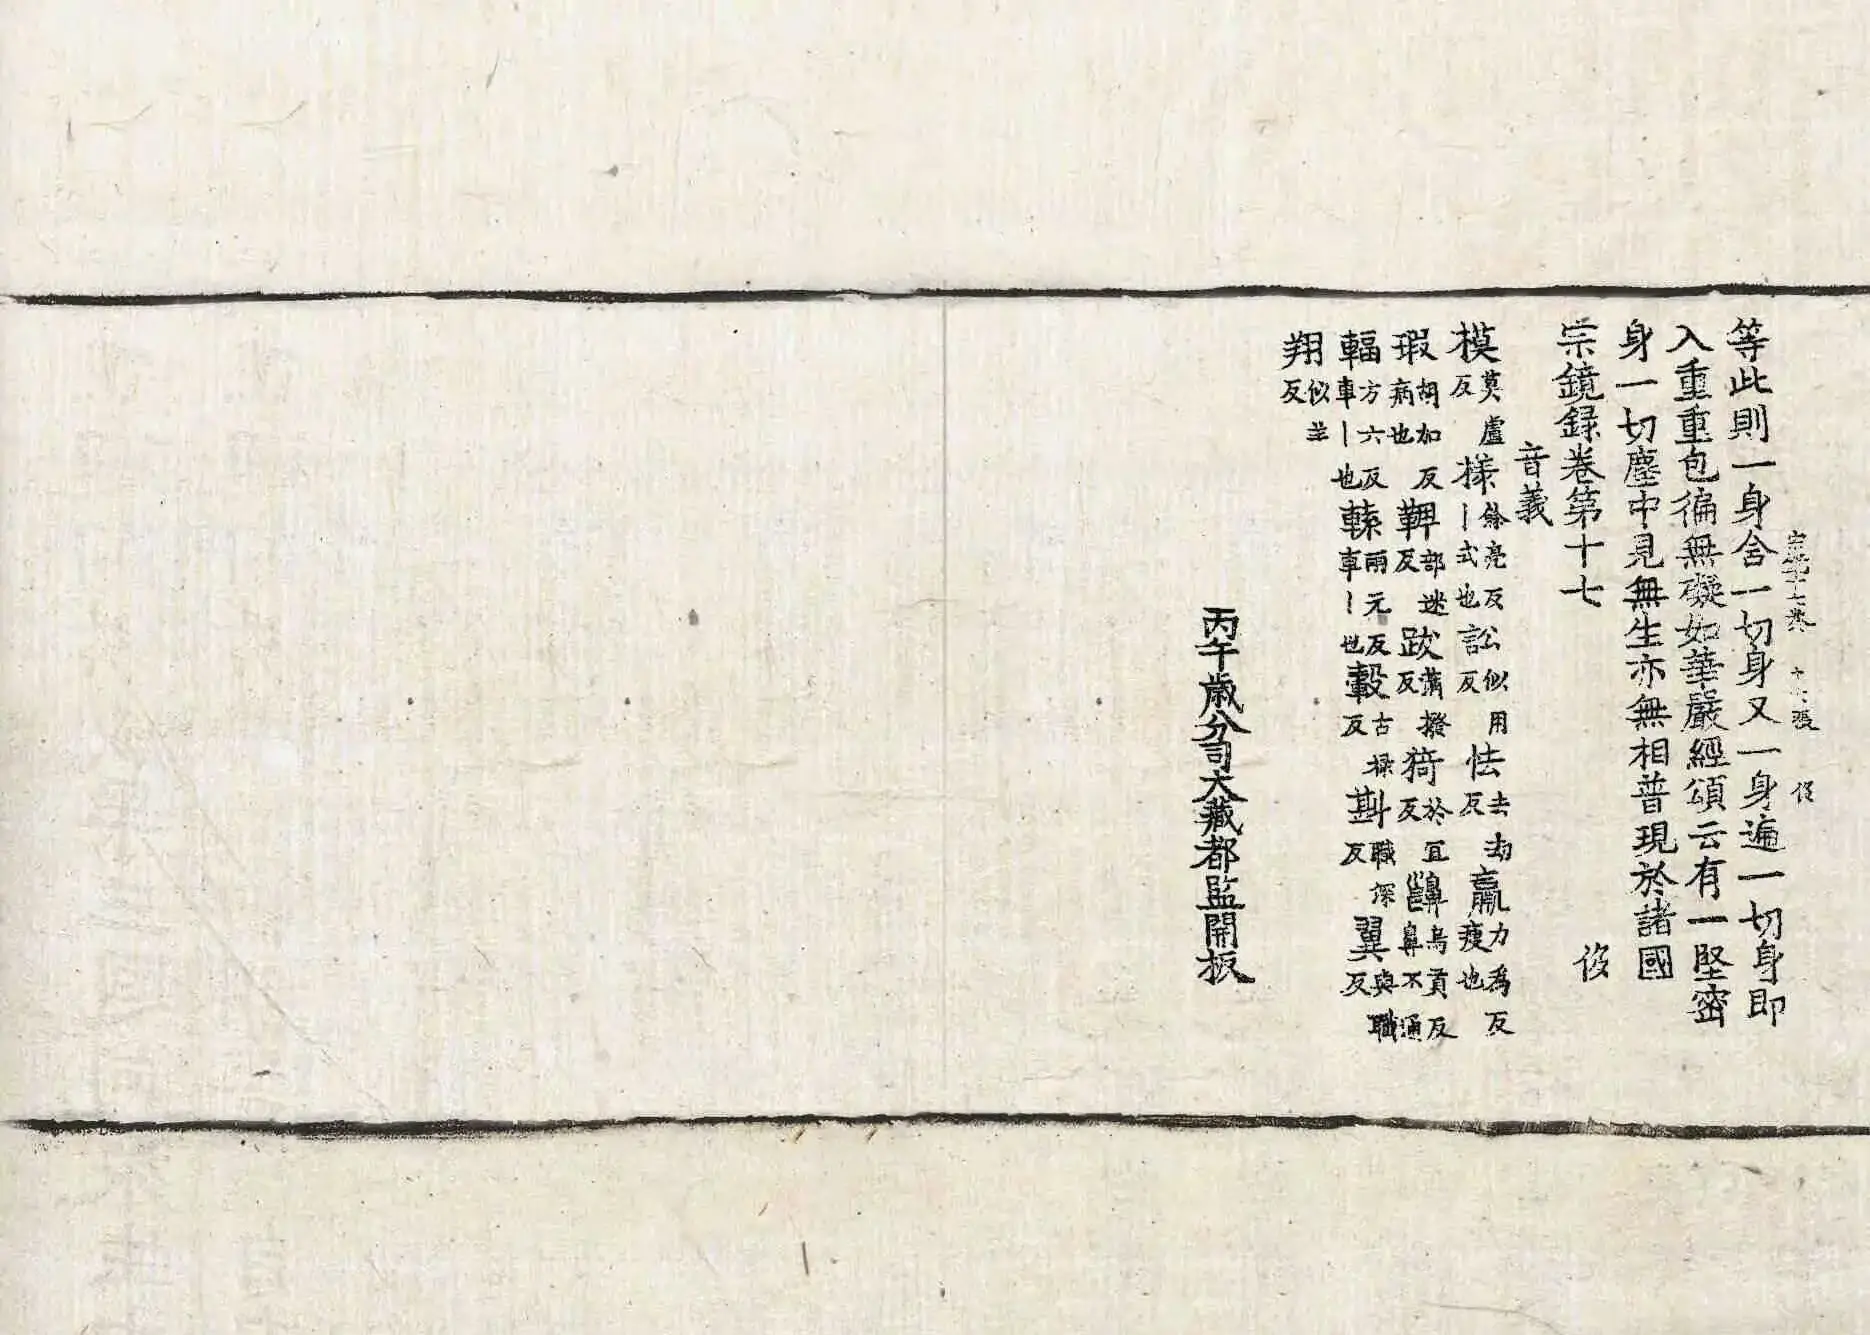 宗鏡十七卷 張 俊
等此則一身含一切身又一身遍一切身即
入重重包徧無礙如華嚴經頌云有一堅密
身一切塵中見無生亦無相普現於諸國
宗鏡録卷第十七 俊
音義
模莫盧反 樣餘亮反丨式也 訟似用反 怯去劫反 羸力為反瘦也
瑕胡加反病也 鞞部迷反 跋蒲撥反 猗於宜反 齆烏貢反鼻不通
輻方六反車丨也 轅雨元反車丨也 轂古禄反 斟職深反 翼與職反
翔似羊反
丙午歲分司大藏都監開板